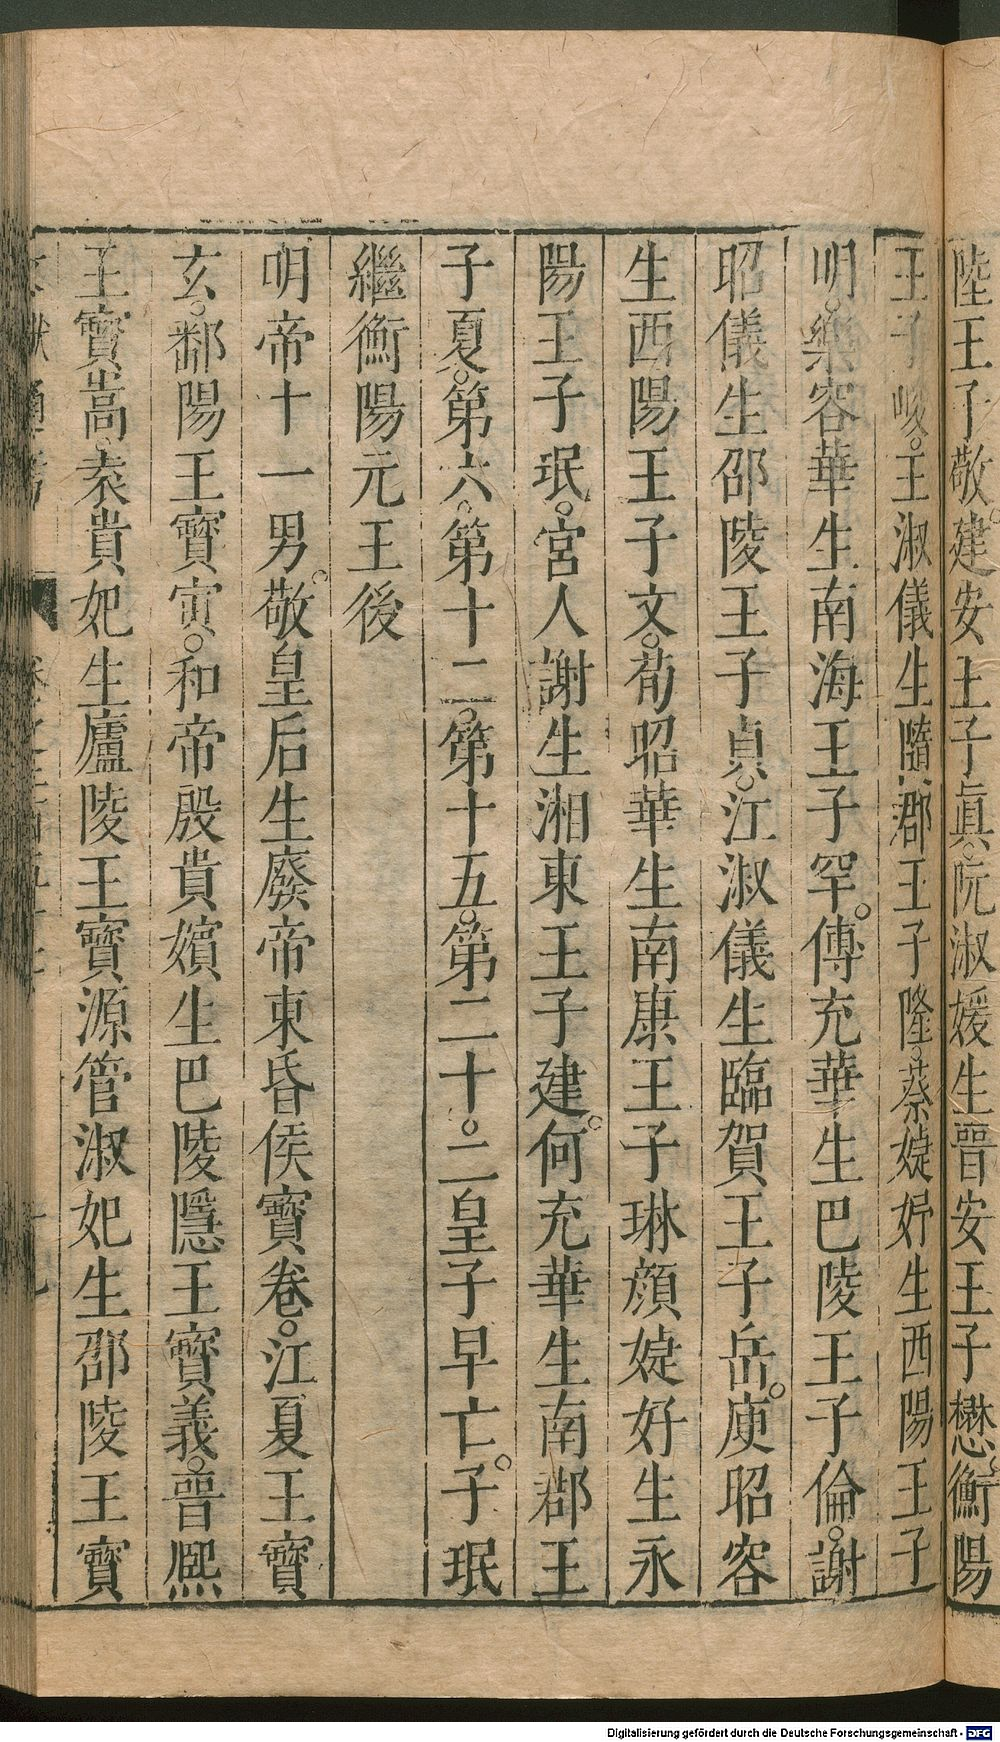 陸王子敬。建安王子眞。阮淑媛生晉安王子懋。衡陽
王子峻。王淑儀生隨郡王子隆。蔡婕妤生西陽王子
明。樂容華生南海王子罕。傅充華生巴陵王子倫。謝
昭儀生邵陵王子貞。江淑儀生臨賀王子岳。庾昭容
生西陽王子文。荀昭華生南康王子琳顔婕妤生永
陽王子珉。宮人謝生湘東王子建。何充華生南郡王
子夏。第六。第十二。第十五。第二十。二皇子早亡。子珉
繼衡陽元王後
明帝十一男。敬皇后生廢帝東昏侯寶卷。江夏王寶
玄。鄱陽王寶寅。和帝殷貴嬪生巴陵隱王寶義。晉熙
王寶嵩。袁貴妃生廬陵王寶源管淑妃生邵陵王寶
Digitalisierung gefördert durch die Deutsche Forschungsgemeinschaft - DFG